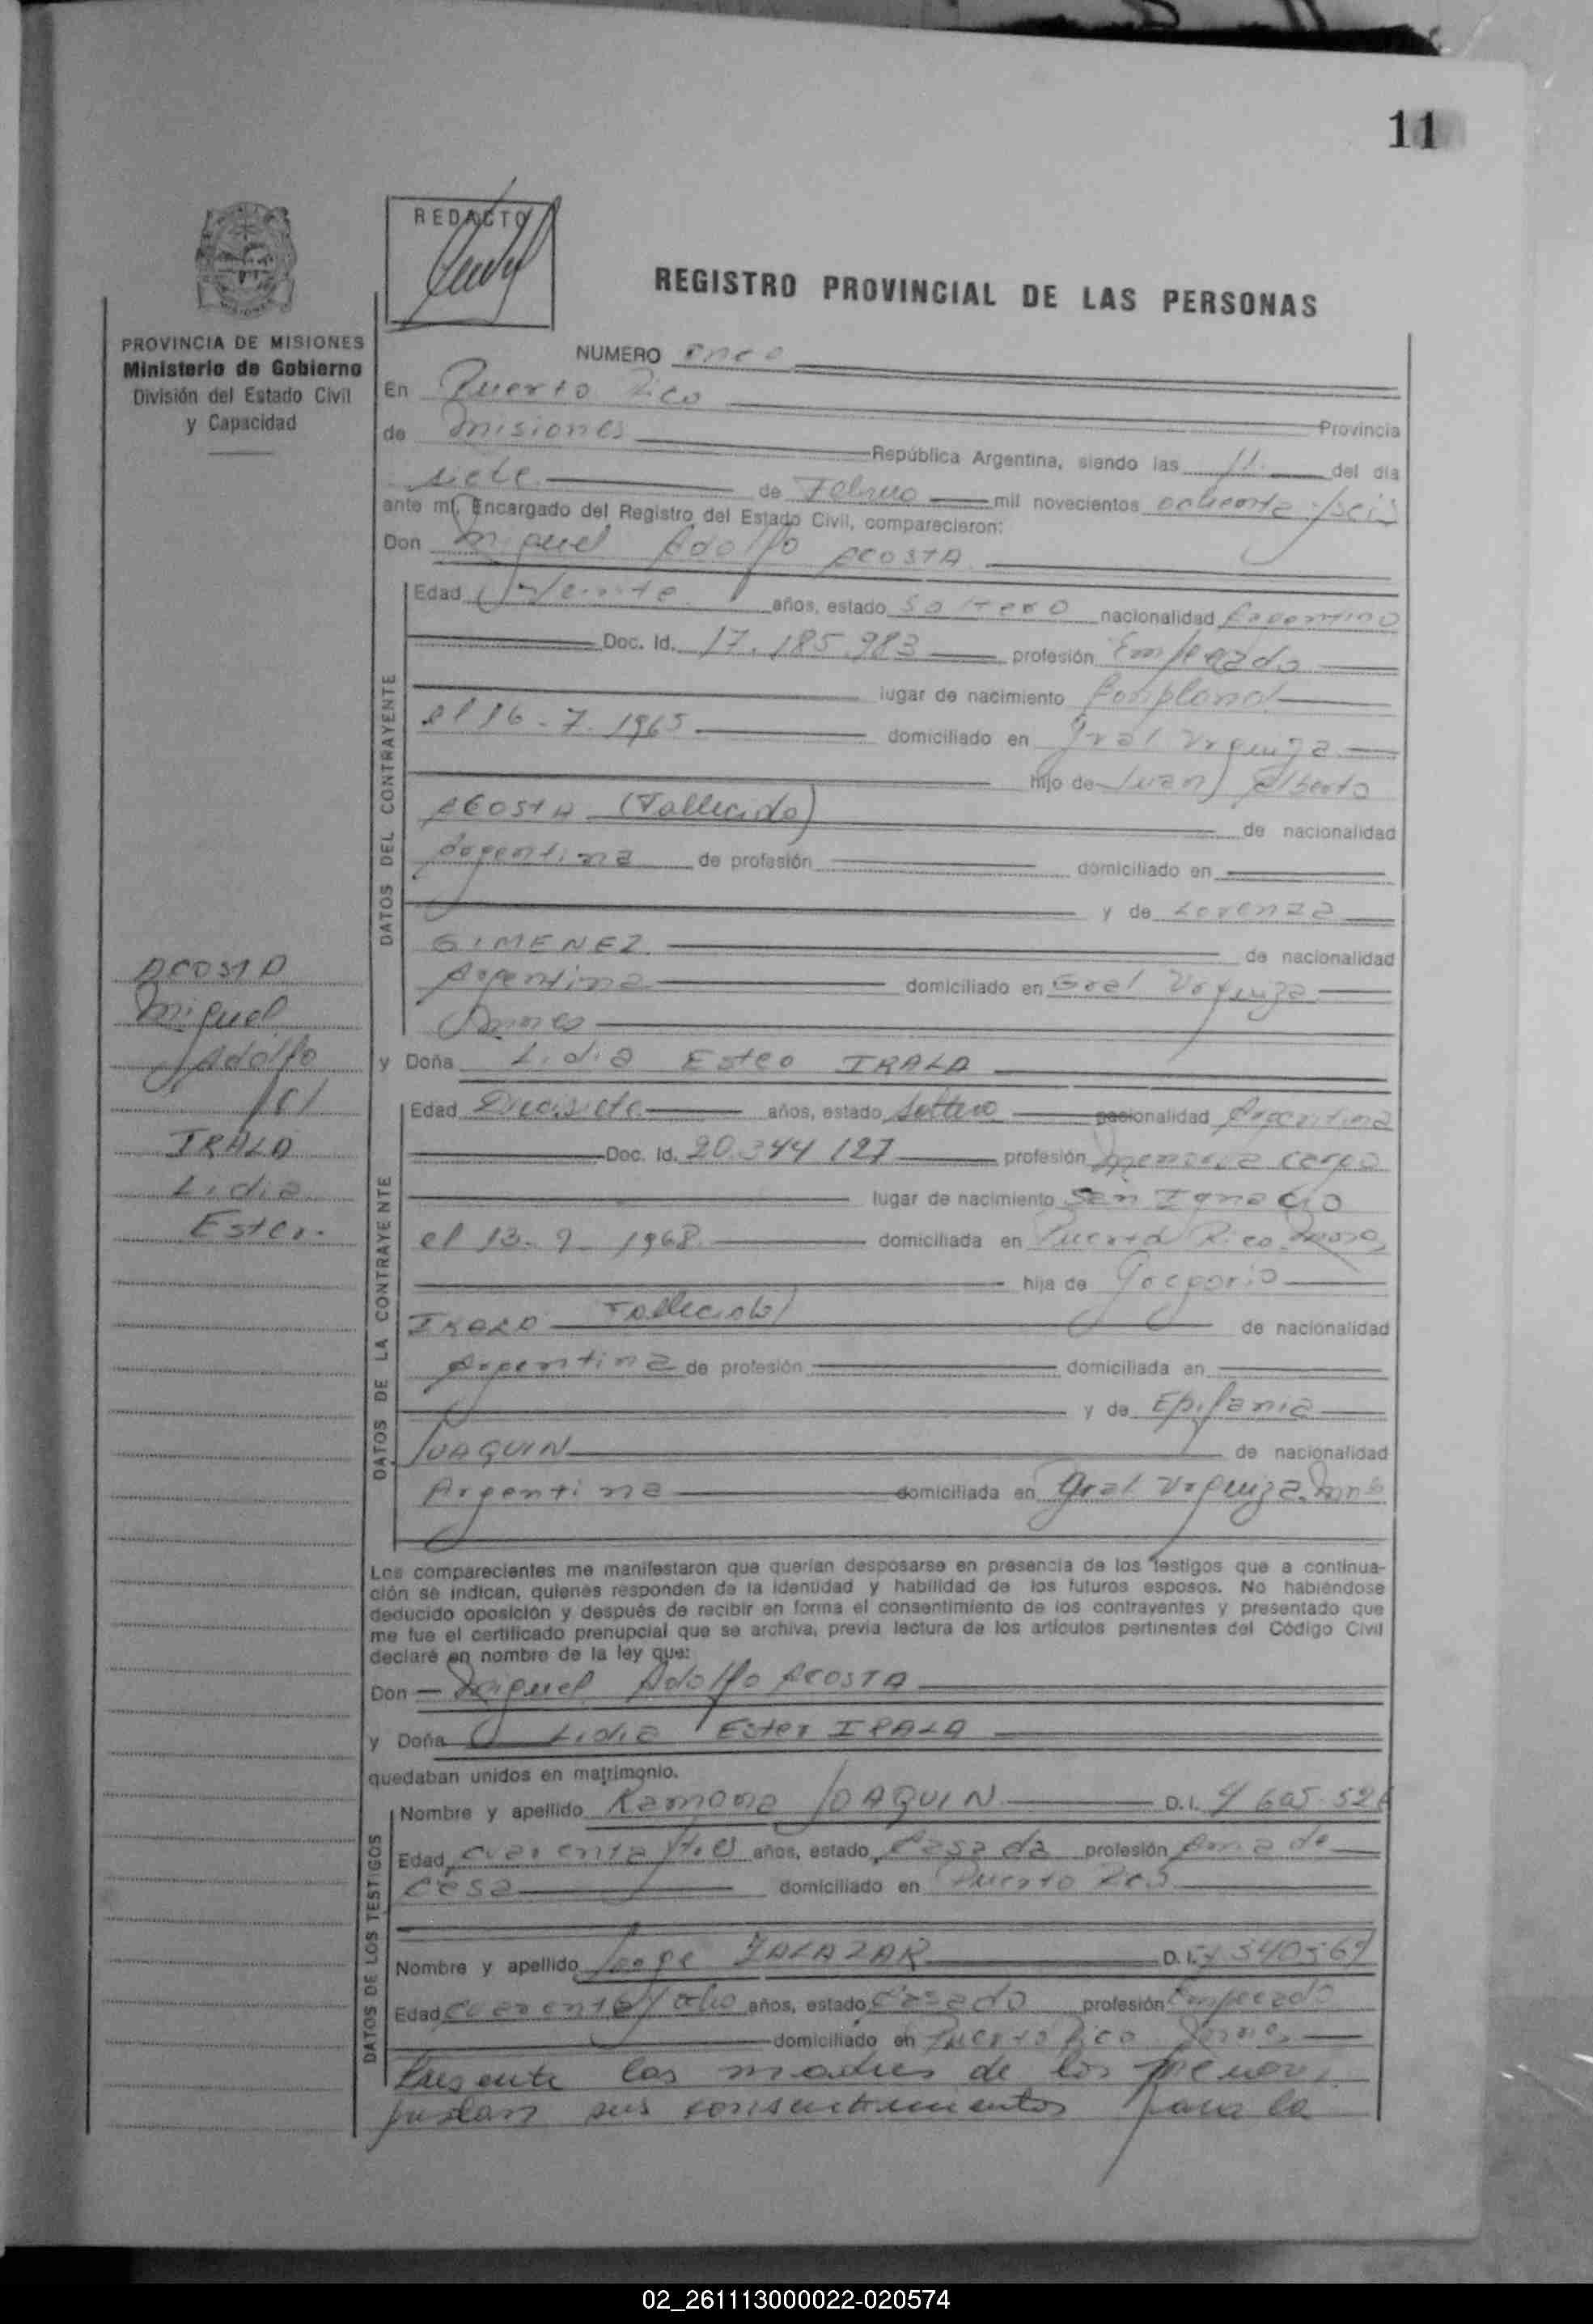 11
REDACTO
REGISTRO PROVINCIAL DE LAS PERSONAS
PROVINCIA DE MISIONES
Ministerio de Gobierno
División del Estado Civil
y Capacidad
NUMERO once
En Puerto Rico
de Misiones Provincia
República Argentina, siendo las 11 del día
siete de Febrero mil novecientos ochenta y seis
ante mí, Encargado del Registro del Estado Civil, comparecieron:
Don Miguel Adolfo ACOSTA
DATOS DEL CONTRAYENTE
Edad Veinte años, estado Soltero nacionalidad Argentino
Doc. Id. 17.185.983 profesión Empleado
lugar de nacimiento Bonpland
el 16-7-1965 domiciliado en Gral Urquiza
hijo de Juan Alberto
ACOSTA (Fallecido) de nacionalidad
Argentina de profesión domiciliado en
y de Lorenza
GIMENEZ de nacionalidad
Argentina domiciliado en Gral Urquiza
Mnes
ACOSTA
Miguel
Adolfo
c/
IRALA
Lidia
Ester.
y Doña Lidia Ester IRALA
DATOS DE LA CONTRAYENTE
Edad Diecisiete años, estado Soltera nacionalidad Argentina
Doc. Id. 20.344 127 profesión
lugar de nacimiento San Ignacio
el 13-9-1968 domiciliada en Puerto Rico
hija de Gregorio
IRALA Fallecido) de nacionalidad
Argentina de profesión domiciliada en
y de Epifania
JOAQUIN de nacionalidad
Argentina domiciliada en Gral Urquiza Mnes
Los comparecientes me manifestaron que querían desposarse en presencia de los Testigos que a continua-
ción se indican, quienes responden de la identidad y habilidad de los futuros esposos. No habiéndose
deducido oposición y después de recibir en forma el consentimiento de los contrayentes y presentado que
me fue el certificado prenupcial que se archiva, previa lectura de los artículos pertinentes del Código Civil
declaré en nombre de la ley que:
Don Miguel Adolfo ACOSTA
y Doña Lidia Ester IRALA
quedaban unidos en matrimonio.
DATOS DE LOS TESTIGOS
Nombre y apellido Ramona JOAQUIN D.I. 4 605 526
Edad cuarenta y tres años, estado Casada profesión Ama de
casa domiciliado en Puerto Rico
Nombre y apellido Jorge ZALAZAR D.I. 7 540569
Edad cuarenta y ocho años, estado Casado profesión Empleado
domiciliado en Puerto Rico Mnes
Presente las madres de los menores
prestan sus consentimientos para la
02_261113000022-020574